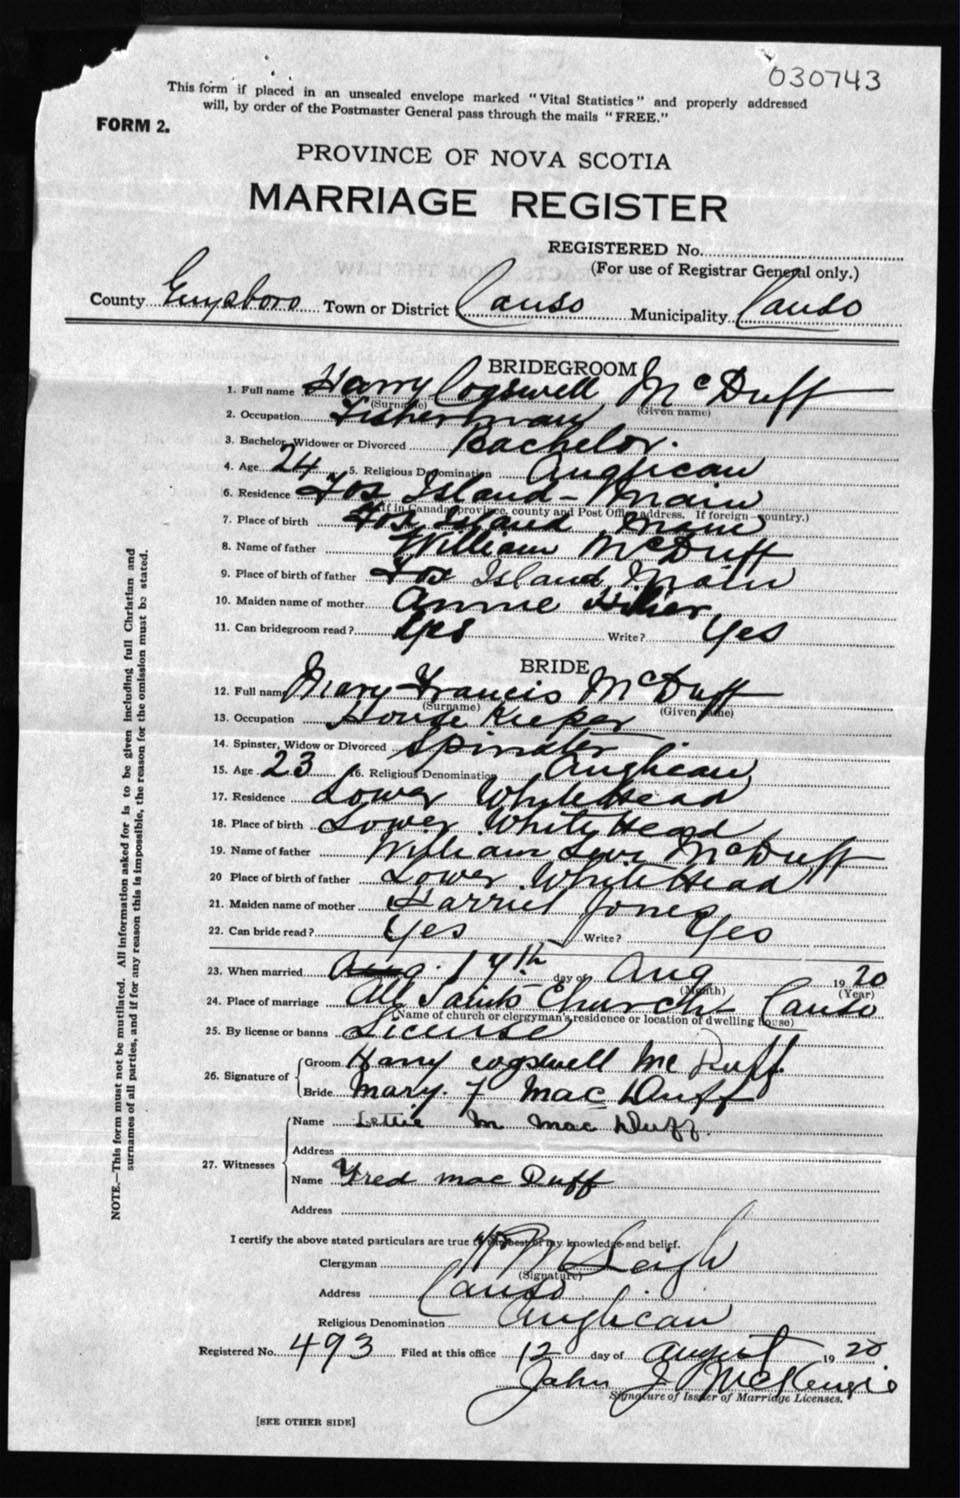 030743
This form if placed in an unsealed envelope marked "Vital Statistics" and properly addressed
will, by order of the Postmaster General pass through the mails "FREE."
FORM 2.
PROVINCE OF NOVA SCOTIA
MARRIAGE REGISTER
REGISTERED No.
(For use of Registrar General only.)
County Guysboro Town or District Canso Municipality Canso
BRIDEGROOM
1. Full name Harry Cogswell McDuff
(Surname) (Given name)
2. Occupation Fisherman
3. Bachelor, Widower or Divorced Bachelor.
4. Age 24 5. Religious Denomination Anglican
6. Residence Fox Island - Main
(If in Canada province, county and Post Office address. If foreign country.)
7. Place of birth Fox Island Main
8. Name of father William McDuff
9. Place of birth of father Fox Island, Main
10. Maiden name of mother Annie
11. Can bridegroom read? Yes Write? Yes
BRIDE
12. Full name Mary Francis McDuff
(Surname) (Given name)
13. Occupation House Keeper
14. Spinster, Widow or Divorced Spinster
15. Age 23 16. Religious Denomination Anglican
17. Residence Lower White Head
18. Place of birth Lower White Head
19. Name of father William Levi McDuff
20 Place of birth of father Lower White Head
21. Maiden name of mother Harriet Jones
22. Can bride read? Yes Write? Yes
23. When married Aug. 17th day of Aug 1920
(Month) (Year)
24. Place of marriage All Saints Church Canso
(Name of church or clergyman's residence or location of dwelling house)
25. By license or banns License
26. Signature of Groom Harry Cogswell McDuff
Bride Mary. F MacDuff
27. Witnesses
Name Lettie M MacDuff.
Address
Name Fred MacDuff
Address
I certify the above stated particulars are true to the best of my knowledge and belief.
Clergyman Leigh
(Signature)
Address Canso
Religious Denomination Anglican
Registered No. 493 Filed at this office 12 day of August 1920
John J McKenzie
Signature of Issuer of Marriage Licenses.
[SEE OTHER SIDE]
NOTE.—This form must not be mutilated. All information asked for is to be given including full Christian and
surnames of all parties, and if for any reason this is impossible, the reason for the omission must be stated.